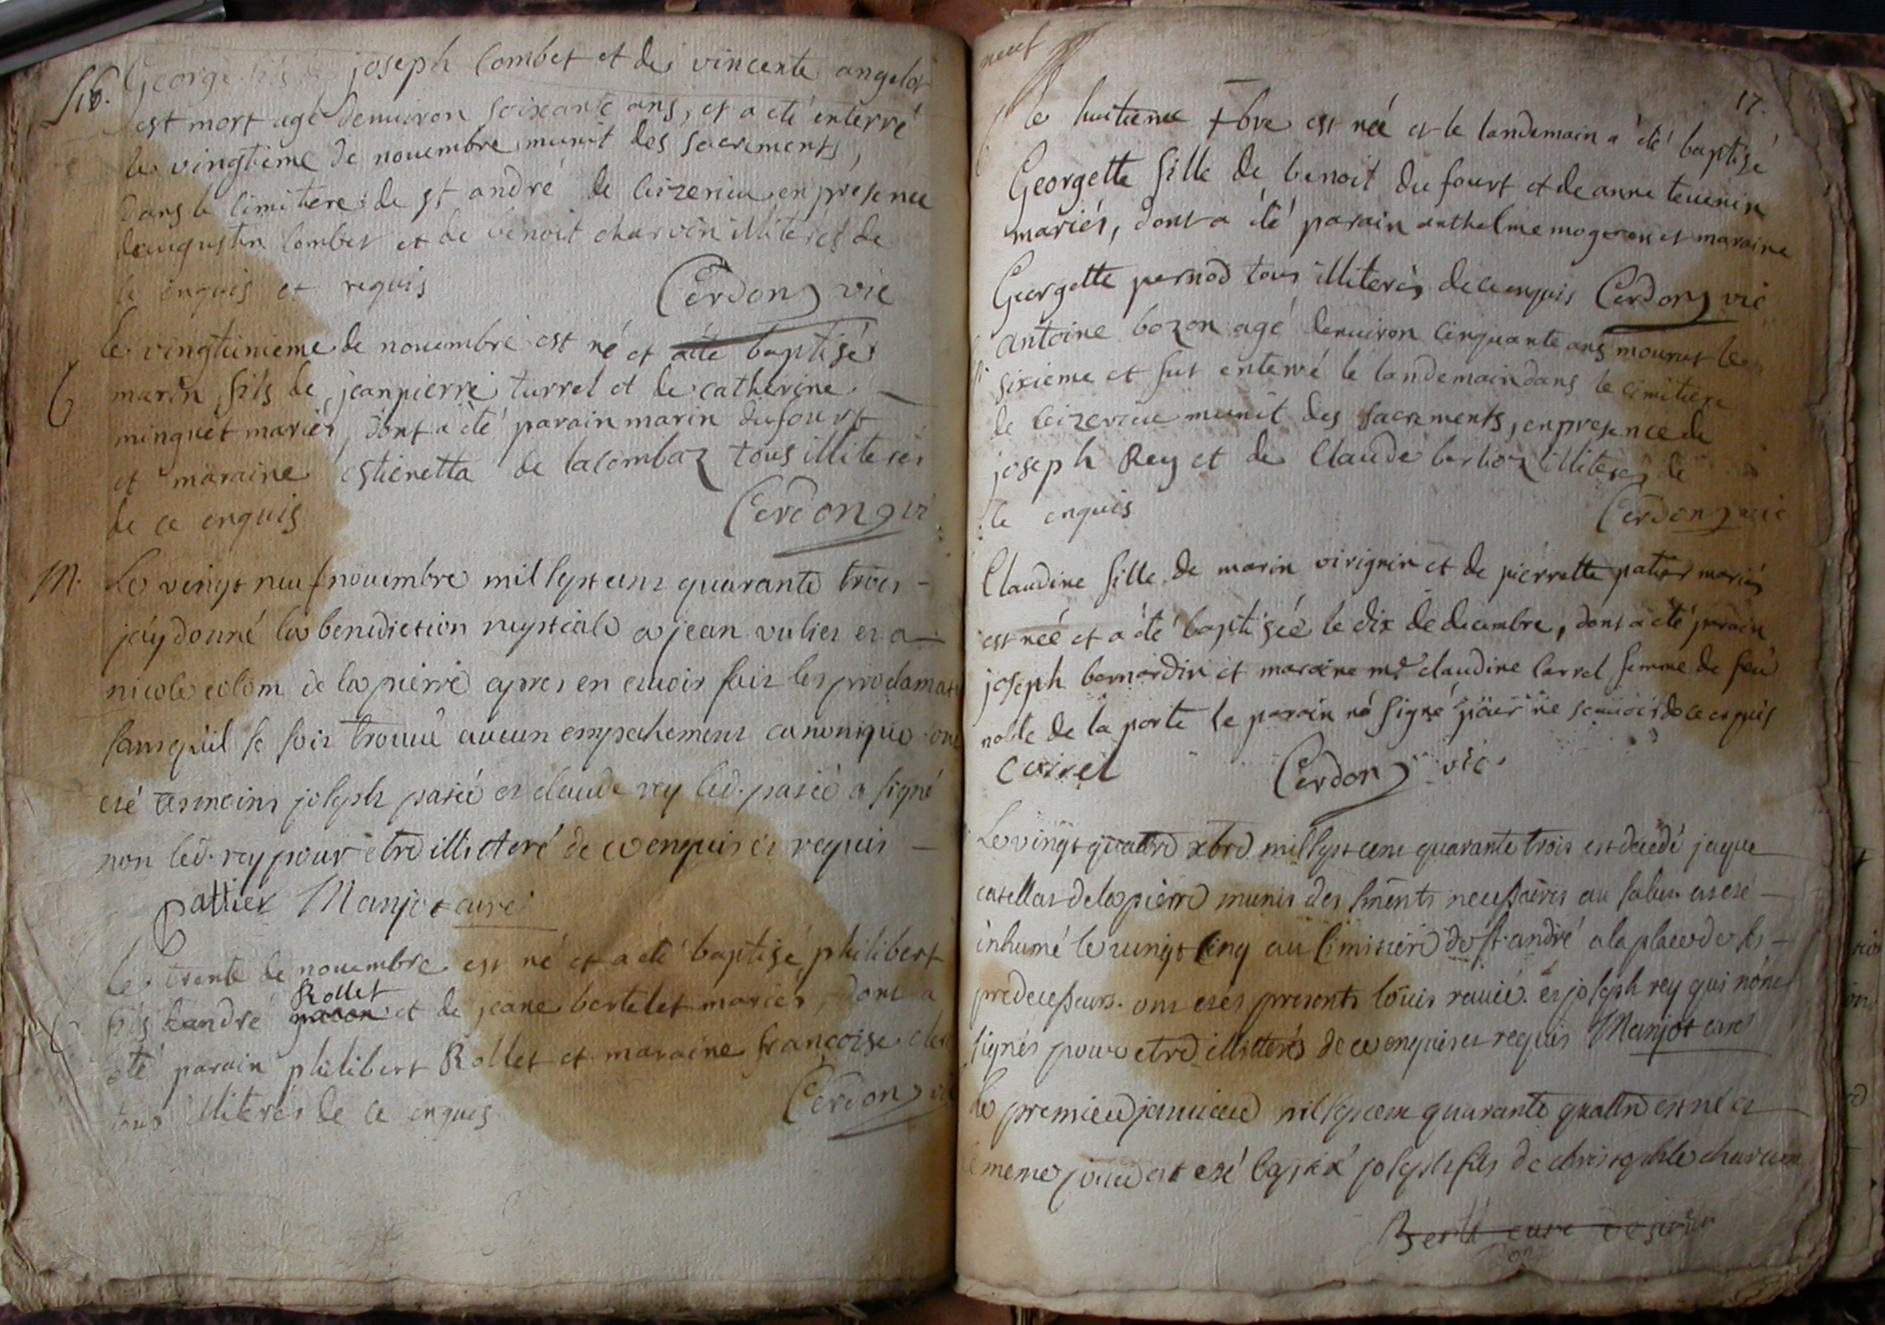 George fils joseph Combet et de vincente angelot
Sib. est mort agé denuiron soixante ans, et a eté enterré
le vingtieme de nouembre munit des sacrements,
dans le cimitere de st andré de Ceizerieu en presence
daugustin Combet et de benoit charvin illiterés de
ce enquis et requis Cerdon vic
le vingtunieme de nouembre est né et a été baptisés
B marin fils de jeanpierre turrel et de catherine
minguet mariés, dont a été parain marin dufourt
et maraine estienetta de lacombaz tous illiterés
de ce enquis Cerdon vi
M. Le vingt neuf nouembre mil sept cens quarante trois -
jay donné la benediction nuptiale a jean vulier et a
nicole colom de la pierre apres en auoir fait les proclamat
sans quil se soit trouué aucun empechement canonique ont
eté temoins joseph patié et claude rey led. patié a signé
non led. rey pour etre illitteré de ce enquis et requis -
pattier Manjot curé
le trente de nouembre est né et a été baptisé philibert
Rollet
fils dandré et de jeane bertelet mariés, dont a
été parain philibert Rollet et maraine francoise
tous illiterés de ce enquis Cerdon vi
neuf
17.
le huitieme xbre est née et le landemain a été baptisé
Georgette fille de benoit du fourt et de anne teuenin
mariés, dont a été parain anthelme mogeron et maraine
Georgette pernod tous illiterés de ce enquis Cerdon vic
antoine bozon agé denuiron cinquante ans mourut le
sixieme et fut enterré le landemain dans le cimitiere
de Ceizerieu munit des sacrements, en presence de
joseph Rey et de Claude berlioz illiterés de
ce enquis Cerdon vic
Claudine fille de marin virignin et de pierrette patier mariés
est née et a été baptisée le dix de decembre, dont a été parain
joseph bernardin et maraine me claudine carrel femme de feu
noble de la porte le parain na signé pour ne scauoir de ce enquis
Carrel Cerdon vic
Le vingt quattre xbre mil sept cens quarante trois est decedé jaque
catellas de la pierre munis des sments necessaires au salut et eté
inhumé le vingt cinq au cimitiere de st andré a la place de ses
predecesseurs. ont etés presents loüis rauié et joseph rey qui nont
signés pour etre illitterés de ce enquis et requis Manjot curé
Le premier januier mil sept cens quarante quattre est né et
le meme jour at eté baptisé joseph fils de christophle charuin
Berth cure